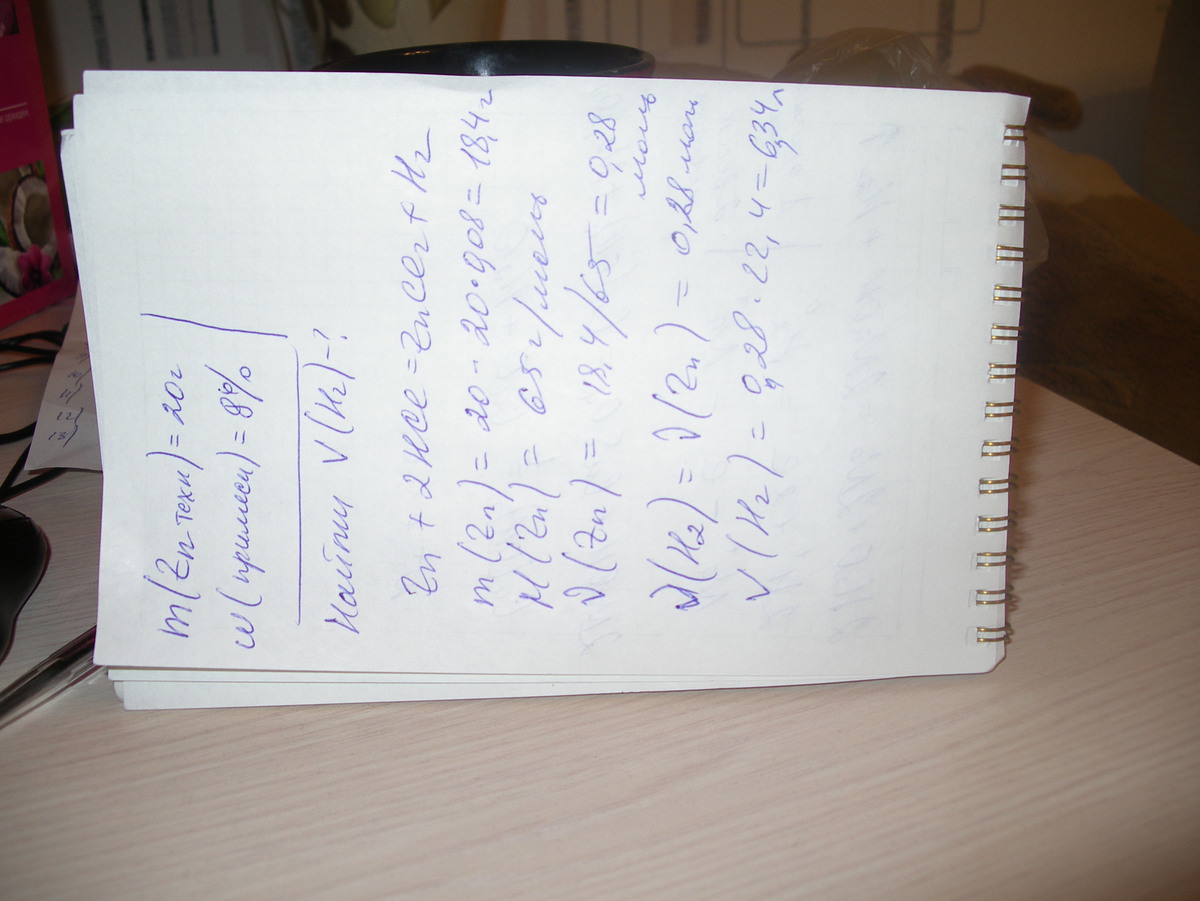 m(Zn техн) = 20г
w(примеси) = 8%
Найти V(H₂)-?
Zn + 2HCl = ZnCl₂ + H₂
m(Zn) = 20 - 20•0,08 = 18,4г
M(Zn) = 65 г/моль
ν(Zn) = 18,4/65 = 0,28
моль
ν(H₂) = ν(Zn) = 0,28 моль
V(H₂) = 0,28 · 22,4 = 6,34л